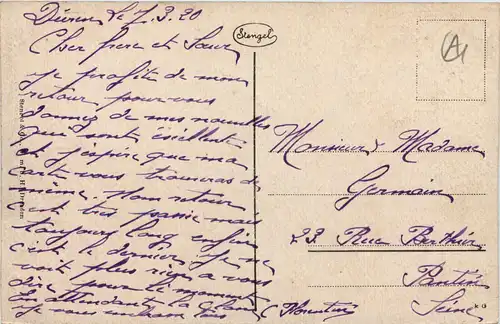 Düren le 7.3.20
Cher frere et Sœur
je profite de mon
retour pour vous
donnez de mes nouvelles
qui sont éxellente
et j'espère que ma
carte vous trouveras de
même. Mon retour
c'est tres passé mais
toujours long enfin
c'est le dernier. je ne
voit plus rien a vous
dire pour le moment
En attendant
je vous embrasse tous
Stengel
A
Monsieur & Madame
Germain
23 Rue Berthier
Pantin
Seine